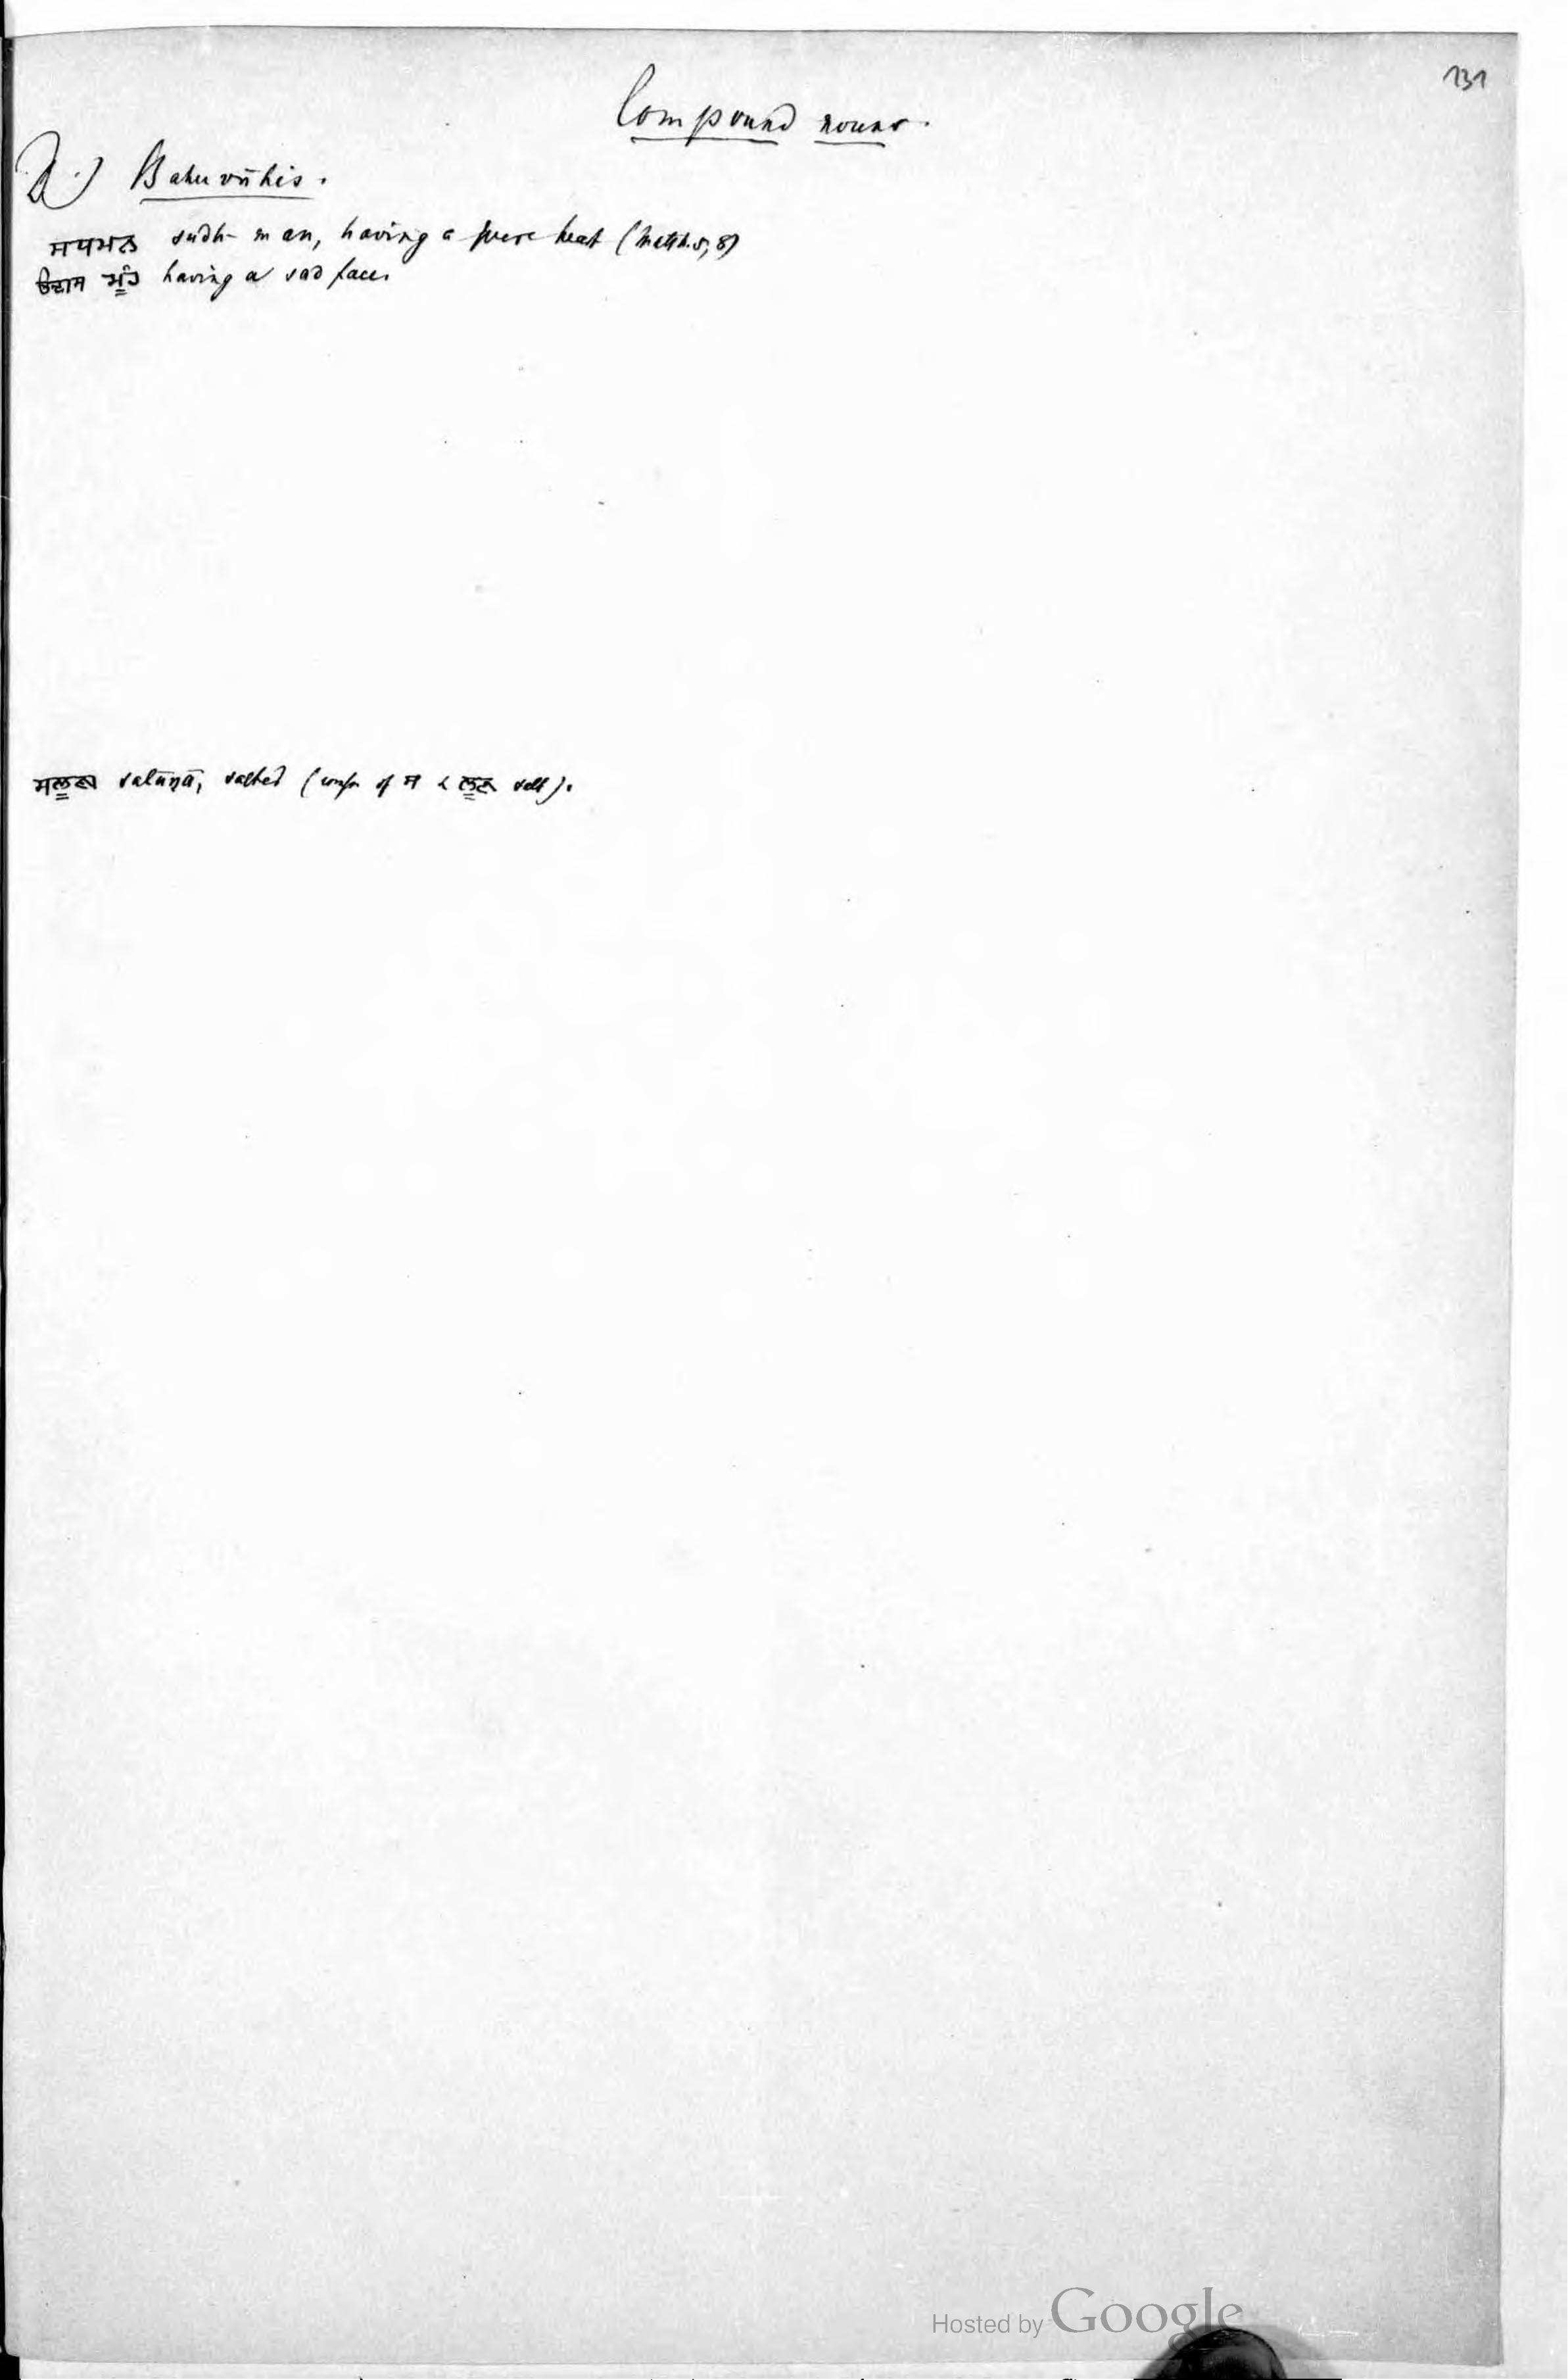 131
Compound nouns.
A.) Bahuvrīhis.
ਸਧਮਨ sudh-man, having a pure heat (Matth. 5, 8)
ਉਦਾਸ ਮੂੰਹ having a sad face.
ਸਲੂਣਾ salūṇā, salted (comp. of ਸ & ਲੂਣ salt).
Hosted by Google